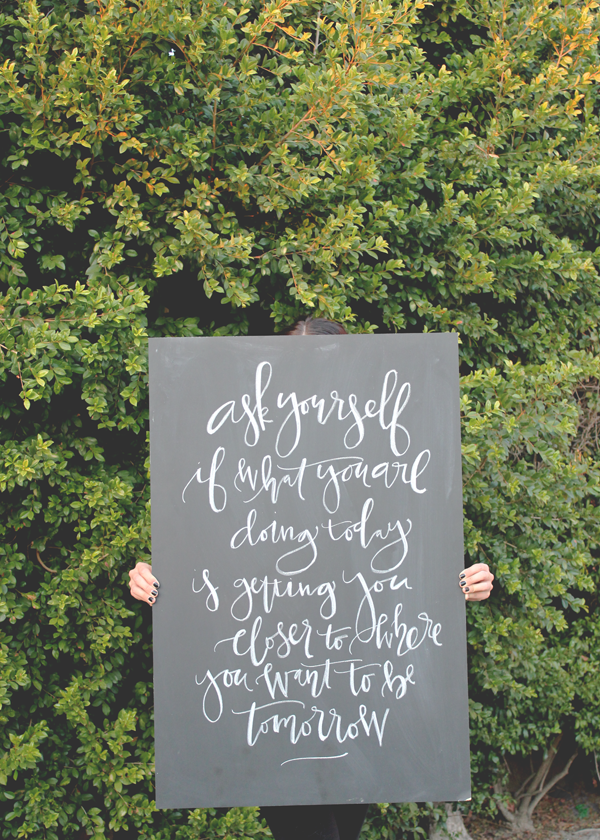 ask yourself
if what you are
doing today
is getting you
closer to where
you want to be
tomorrow